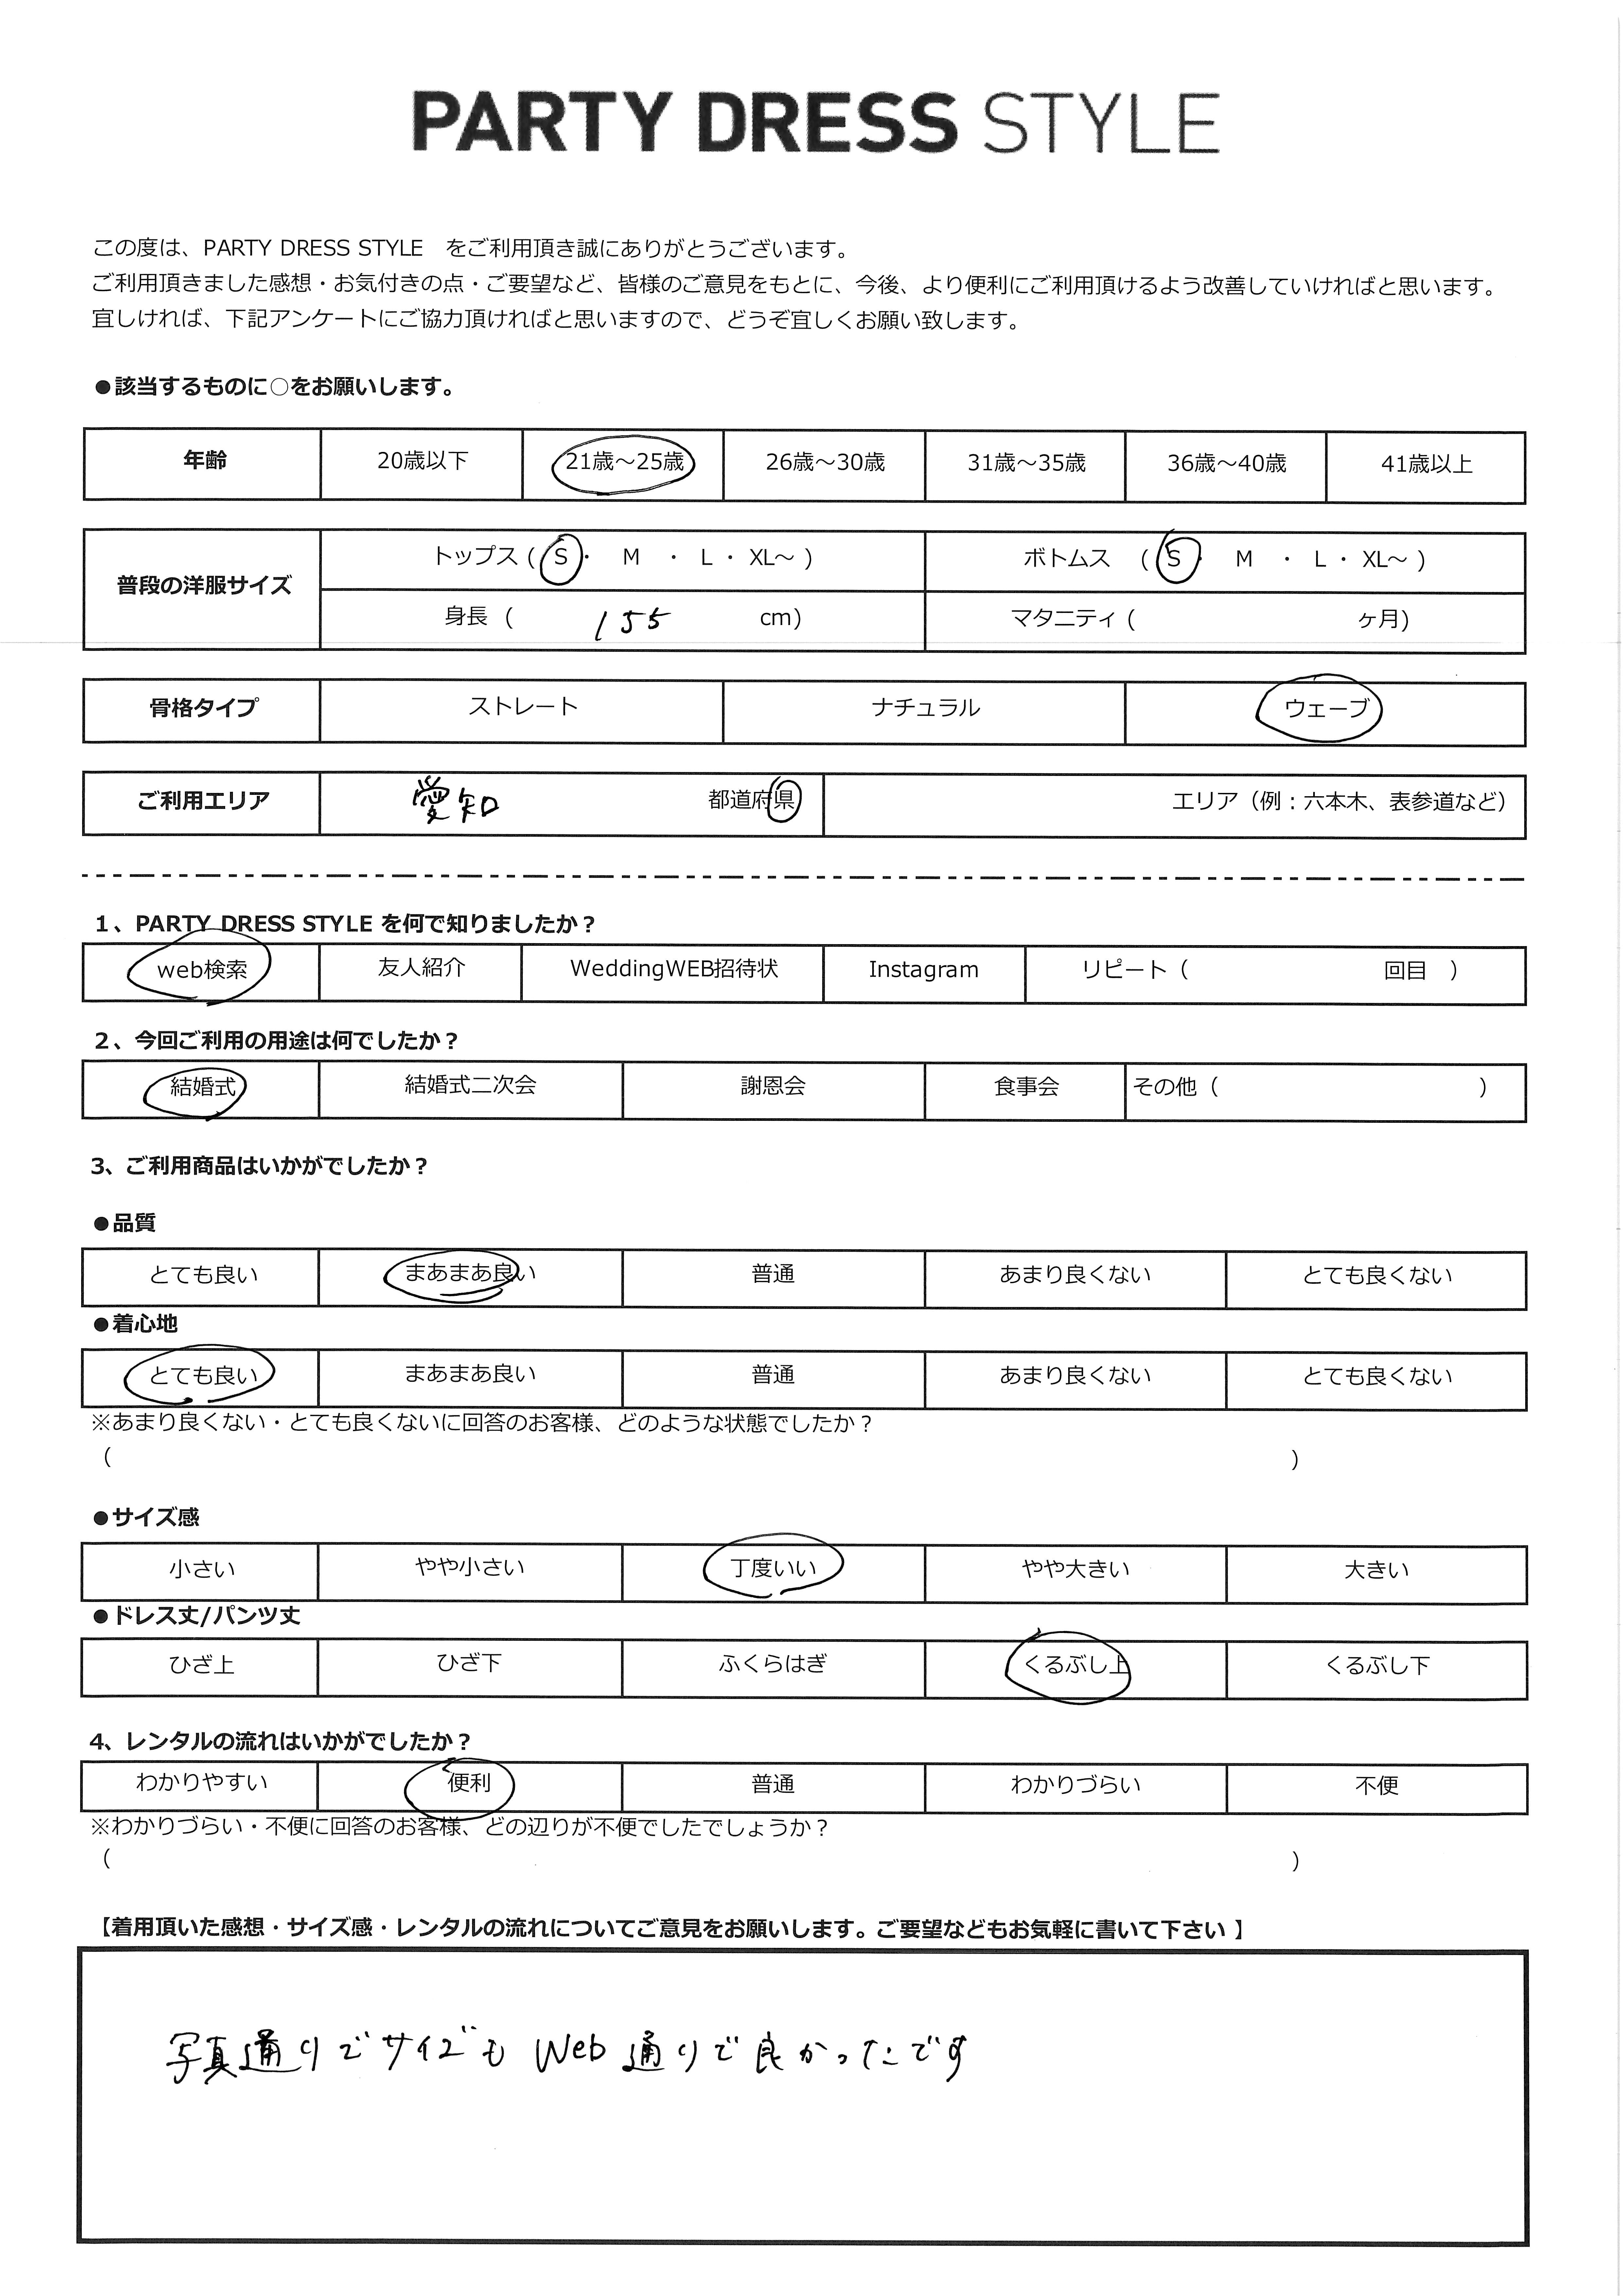 PARTY DRESS STYLE
この度は、PARTY DRESS STYLE　をご利用頂き誠にありがとうございます。
ご利用頂きました感想・お気付きの点・ご要望など、皆様のご意見をもとに、今後、より便利にご利用頂けるよう改善していければと思います。
宜しければ、下記アンケートにご協力頂ければと思いますので、どうぞ宜しくお願い致します。
●該当するものに○をお願いします。
年齢 20歳以下 21歳～25歳 26歳～30歳 31歳～35歳 36歳～40歳 41歳以上
普段の洋服サイズ
トップス ( S ・ M ・ L ・ XL～ ) ボトムス ( S ・ M ・ L ・ XL～ )
身長 ( 155 cm) マタニティ ( ヶ月)
骨格タイプ ストレート ナチュラル ウェーブ
ご利用エリア 愛知 都道府県 エリア（例：六本木、表参道など）
1、PARTY DRESS STYLE を何で知りましたか？
web検索 友人紹介 WeddingWEB招待状 Instagram リピート（ 回目 ）
2、今回ご利用の用途は何でしたか？
結婚式 結婚式二次会 謝恩会 食事会 その他（ ）
3、ご利用商品はいかがでしたか？
●品質
とても良い まあまあ良い 普通 あまり良くない とても良くない
●着心地
とても良い まあまあ良い 普通 あまり良くない とても良くない
※あまり良くない・とても良くないに回答のお客様、どのような状態でしたか？
（ ）
●サイズ感
小さい やや小さい 丁度いい やや大きい 大きい
●ドレス丈/パンツ丈
ひざ上 ひざ下 ふくらはぎ くるぶし上 くるぶし下
4、レンタルの流れはいかがでしたか？
わかりやすい 便利 普通 わかりづらい 不便
※わかりづらい・不便に回答のお客様、どの辺りが不便でしたでしょうか？
（ ）
【着用頂いた感想・サイズ感・レンタルの流れについてご意見をお願いします。ご要望などもお気軽に書いて下さい 】
写真通りでサイズも Web 通りで良かったです